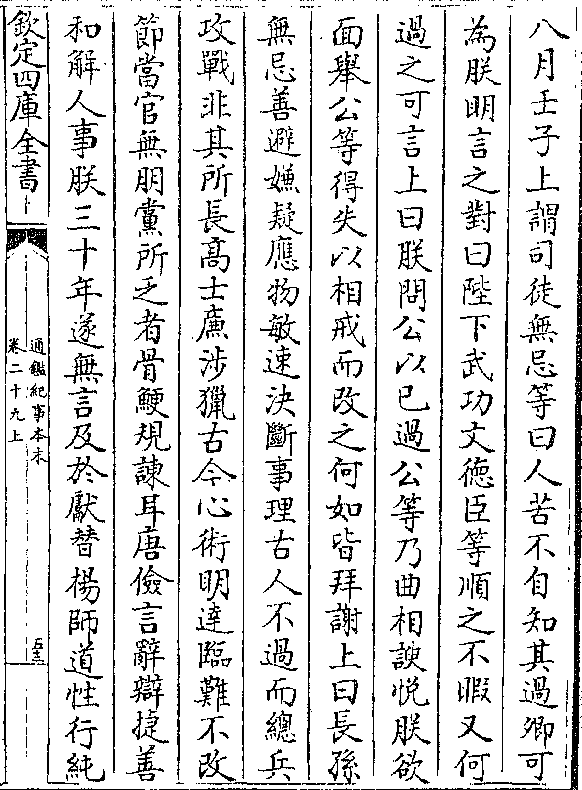 八月壬子上謂司徒無忌等曰人苦不自知其過卿可
為朕明言之對曰陛下武功文徳臣等順之不暇又何
過之可言上曰朕問公以已過公等乃曲相諛悦朕欲
面舉公等得失以相戒而改之何如皆拜謝上曰長孫
無忌善避嫌疑應物敏速決斷事理古人不過而總兵
攻戰非其所長髙士㢘涉獵古今心術明逹臨難不改
節當官無朋黨所乏者骨鯁規諫耳唐儉言辭辯捷善
和解人事朕三十年遂無言及於獻替楊師道性行純
欽定四庫全書
通鑑紀事本末
卷二十九上
五三